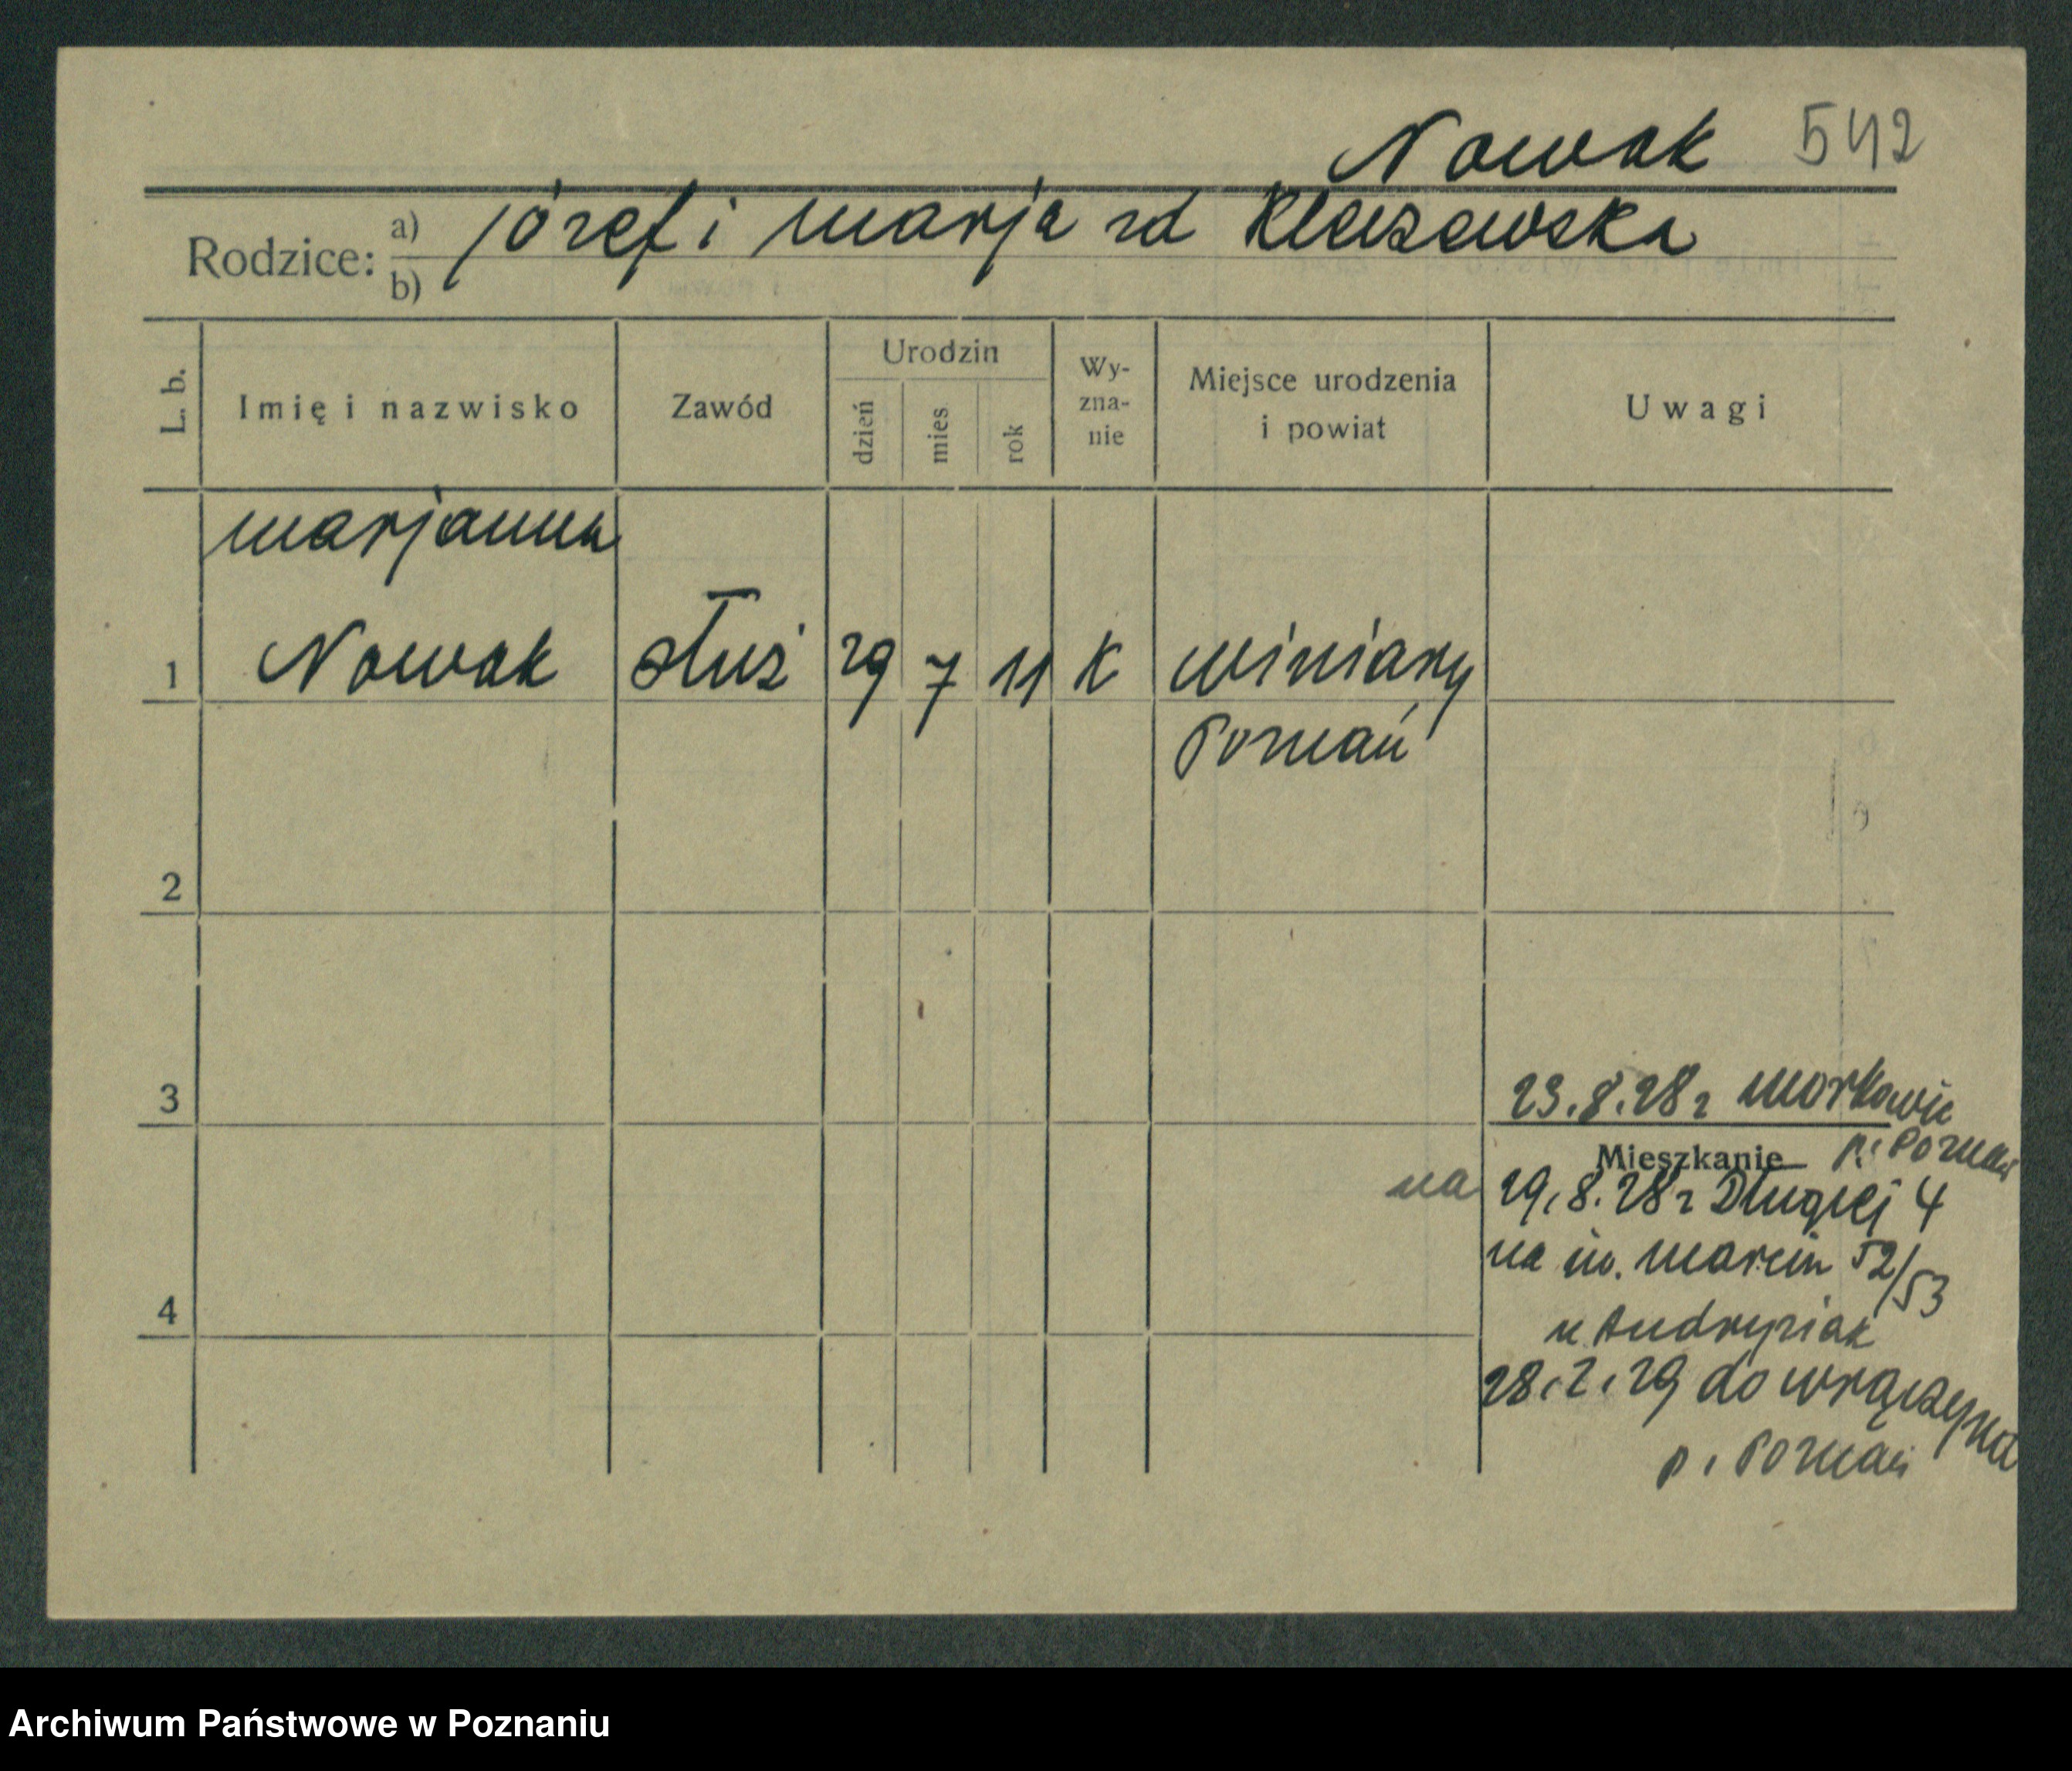 Nowak 542
Rodzice: a) józef i marja zd Kleiszewska
b)
L. b. Imię i nazwisko Zawód Urodzin dzień mies rok Wy-zna-nie Miejsce urodzenia i powiat Uwagi
marjanna
1 Nowak służ 29 7 11 K winiary
Poznań
2
3
23.8.28 r morkowic
p. Poznań
Mieszkanie
na 29.8.28 r Długiej 4
na św. marcin 52/53
u Andrzejak
4
28.2.29 do wrączyna
p. Poznań
Archiwum Państwowe w Poznaniu